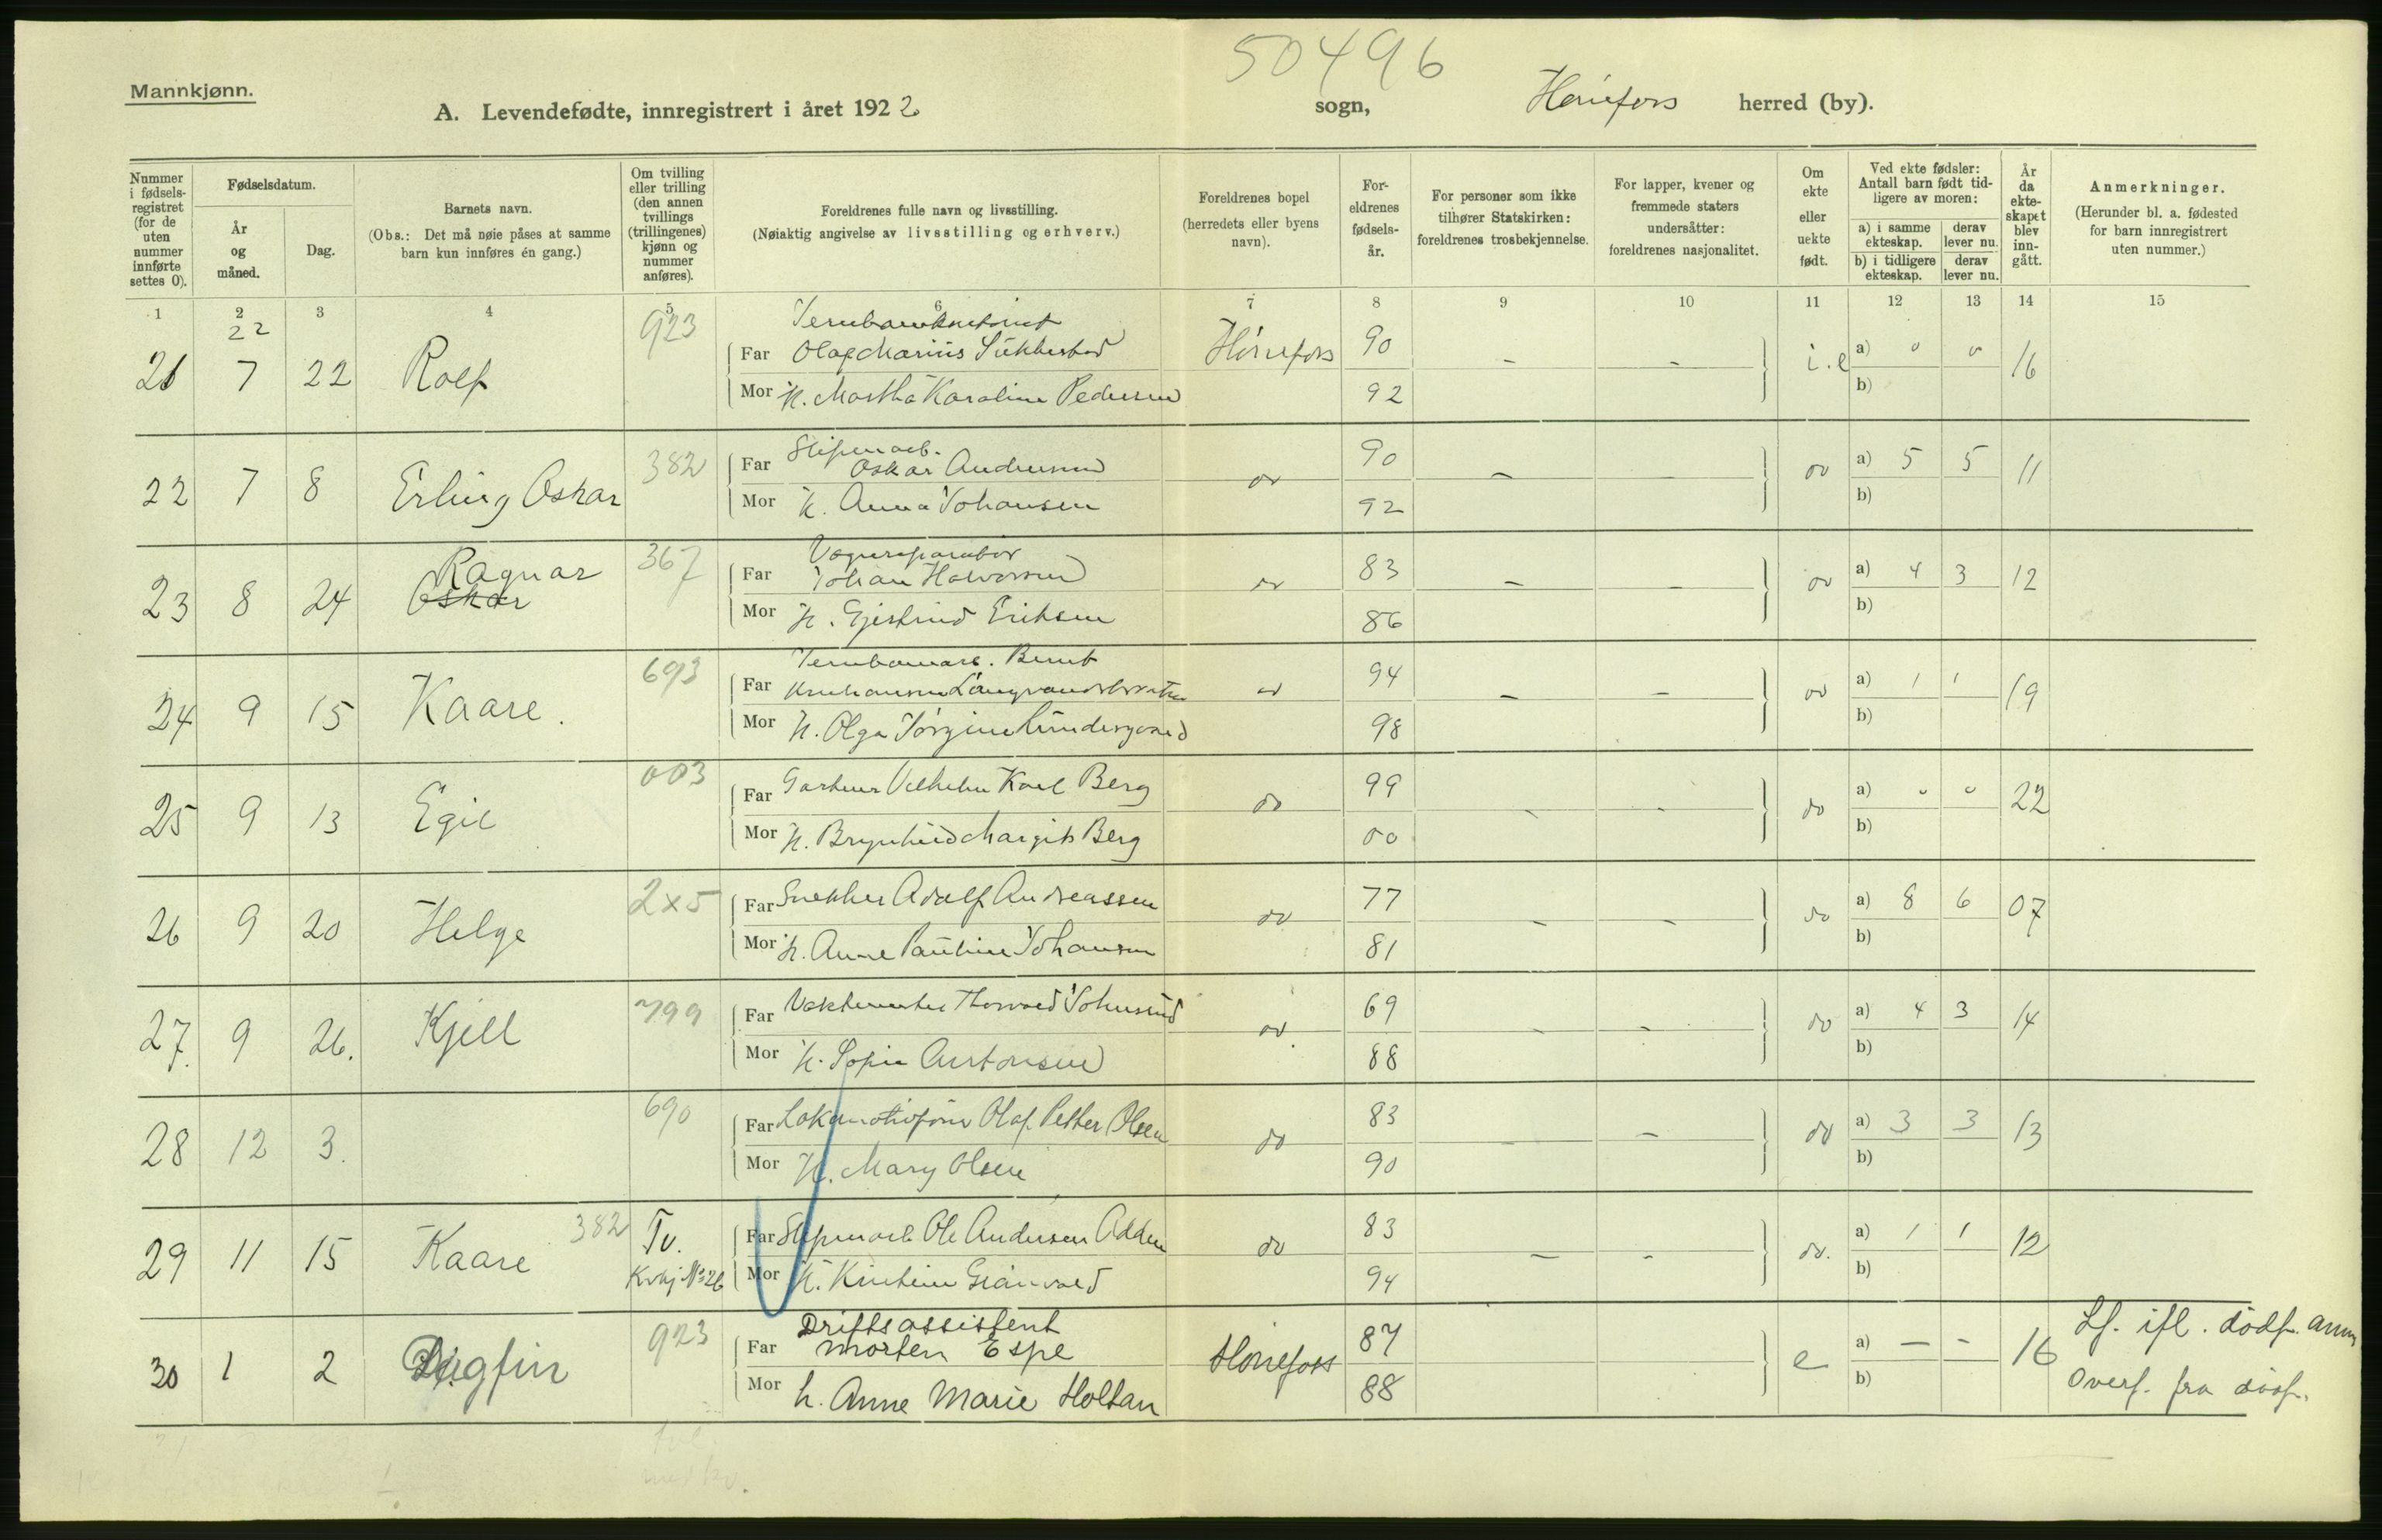 50496
Mannkjønn.
A. Levendefødte, innregistrert i året 1922
sogn, Hönefoss herred (by).
Nummer i fødsels-registret (for de uten nummer innførte settes 0).
Fødselsdatum.
År og måned.
Dag.
Barnets navn.
(Obs.: Det må nøie påses at samme barn kun innføres én gang.)
Om tvilling eller trilling (den annen tvillings (trillingenes) kjønn og nummer anføres).
Foreldrenes fulle navn og livsstilling.
(Nøiaktig angivelse av livsstilling og erhverv.)
Foreldrenes bopel (herredets eller byens navn).
For-eldrenes fødsels-år.
For personer som ikke tilhører Statskirken: foreldrenes trosbekjennelse.
For lapper, kvener og fremmede staters undersåtter: foreldrenes nasjonalitet.
Om ekte eller uekte født.
Ved ekte fødsler: Antall barn født tid-ligere av moren:
a) i samme ekteskap.
derav lever nu.
b) i tidligere ekteskap.
derav lever nu.
År da ekte-skapet blev inn-gått.
Anmerkninger.
(Herunder bl. a. fødested for barn innregistrert uten nummer.)
1 2 3 4 5 6 7 8 9 10 11 12 13 14 15
22
21 7 22 Rolf 923
Far Olaf Marius Hönefoss 90 - - i. e a) 0 0 16
Mor H. Martha Karoline Pedersen 92 b)
22 7 8 Erling Oskar 382
Far Sliperiarb. Oskar Andersen do 90 - - do a) 5 5 11
Mor H. Anna Johansen 92 b)
23 8 24 Ragnar Oskar 367
Vognreparatör
Far Johan Halvorsen do 83 - - do a) 4 3 12
Mor H. Gjertrud Eriksen 86 b)
24 9 15 Kaare. 693
Jernbanearb. Bernt
Far do 94 - - do a) 1 1 19
Mor H. Olga Jörgine 98 b)
25 9 13 Egil 003
Far Gartner Vilhelm Karl Berg do 99 - - do a) 0 0 22
Mor H. Brynhild Margit Berg 00 b)
26 9 20 Helge 2x5
Far Snekker Adolf Andreassen do 77 - - do a) 8 6 07
Mor H. Anne Pauline Johansen 81 b)
27. 9 26. Kjell 799
Far Vaktmester Thorvald Johnsrud do 69 - - do a) 4 3 14
Mor H. Sofie 88 b)
28 12 3. 690
Far Lokomotivförer Olaf Petter Olsen do 83 - - do a) 3 3 13
Mor H. Mary Olsen 90 b)
29 11 15 Kaare 382 Tv. Kvkj No 26
Far Sliperiarb Ole Andersen do 83 - - do. a) 1 1 12
Mor H. Kristine 94 b)
30 1 2 Dagfin 923
Driftsassistent
Far Morten Espe Hönefoss 87 e a) - - 16 Lf. ifl. dödf. anm
Mor h. Anne Marie Holtan 88 b) Overf. fra dödf.